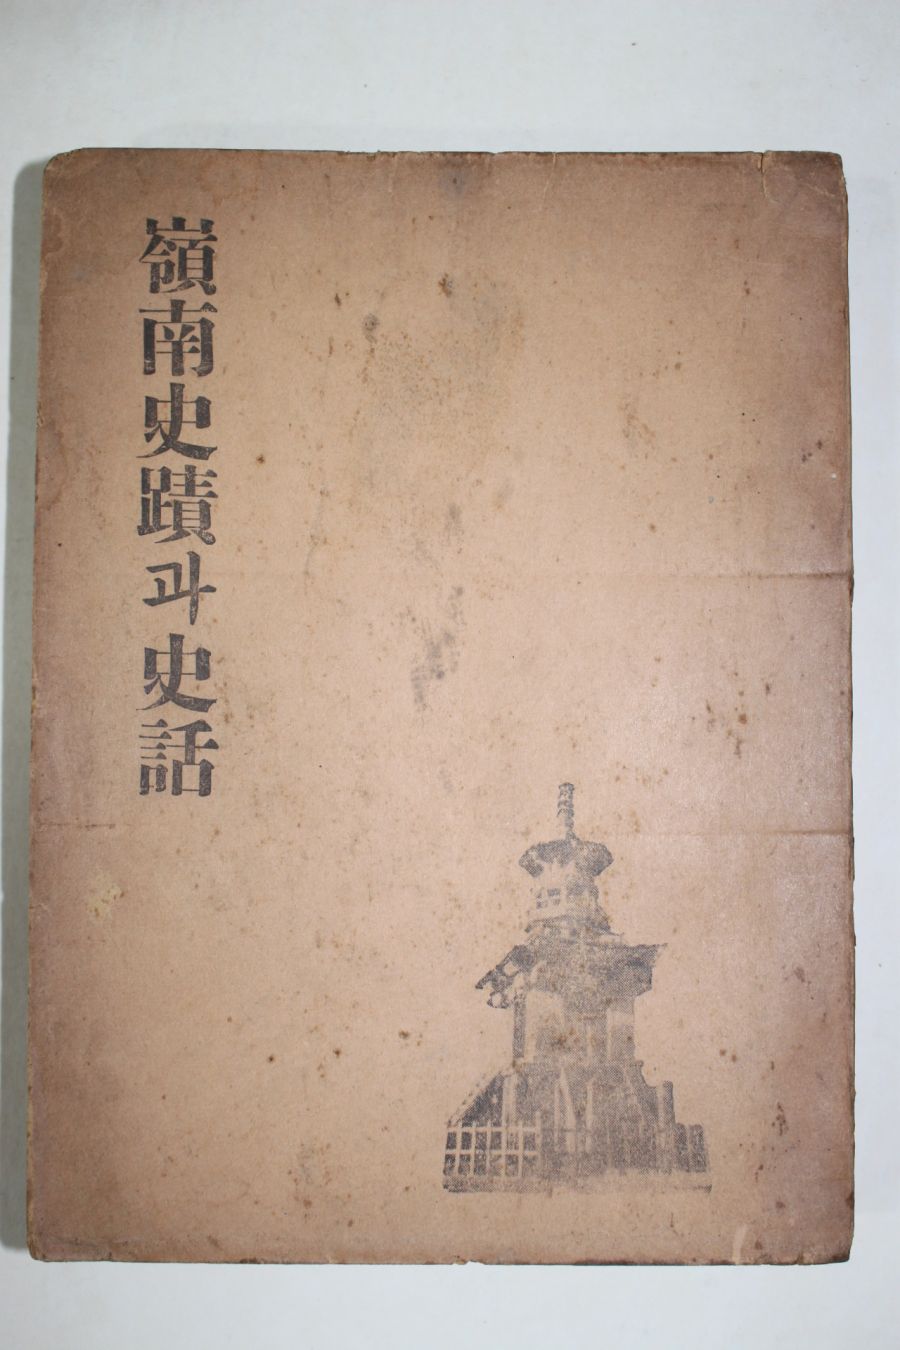 嶺南史蹟과史話